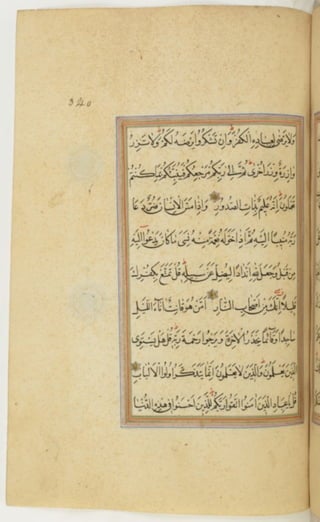 340
وَلَا يَرْضَى لِعِبَادِهِ الْكُفْرَ وَإِنْ تَشْكُرُوا يَرْضَهُ لَكُمْ وَلَا تَزِرُ
وَازِرَةٌ وِزْرَ أُخْرَى ثُمَّ إِلَى رَبِّكُمْ مَرْجِعُكُمْ فَيُنَبِّئُكُمْ بِمَا كُنْتُمْ
تَعْمَلُونَ إِنَّهُ عَلِيمٌ بِذَاتِ الصُّدُورِ وَإِذَا مَسَّ الْإِنْسَانَ ضُرٌّ دَعَا
رَبَّهُ مُنِيبًا إِلَيْهِ ثُمَّ إِذَا خَوَّلَهُ نِعْمَةً مِنْهُ نَسِيَ مَا كَانَ يَدْعُو إِلَيْهِ
مِنْ قَبْلُ وَجَعَلَ لِلَّهِ أَنْدَادًا لِيُضِلَّ عَنْ سَبِيلِهِ قُلْ تَمَتَّعْ بِكُفْرِكَ
قَلِيلًا إِنَّكَ مِنْ أَصْحَابِ النَّارِ أَمَّنْ هُوَ قَانِتٌ آنَاءَ اللَّيْلِ
سَاجِدًا وَقَائِمًا يَحْذَرُ الْآخِرَةَ وَيَرْجُوا رَحْمَةَ رَبِّهِ قُلْ هَلْ يَسْتَوِي
الَّذِينَ يَعْلَمُونَ وَالَّذِينَ لَا يَعْلَمُونَ إِنَّمَا يَتَذَكَّرُ أُولُوا الْأَلْبَابِ
قُلْ يَا عِبَادِ الَّذِينَ آمَنُوا اتَّقُوا رَبَّكُمْ لِلَّذِينَ أَحْسَنُوا فِي هَذِهِ الدُّنْيَا